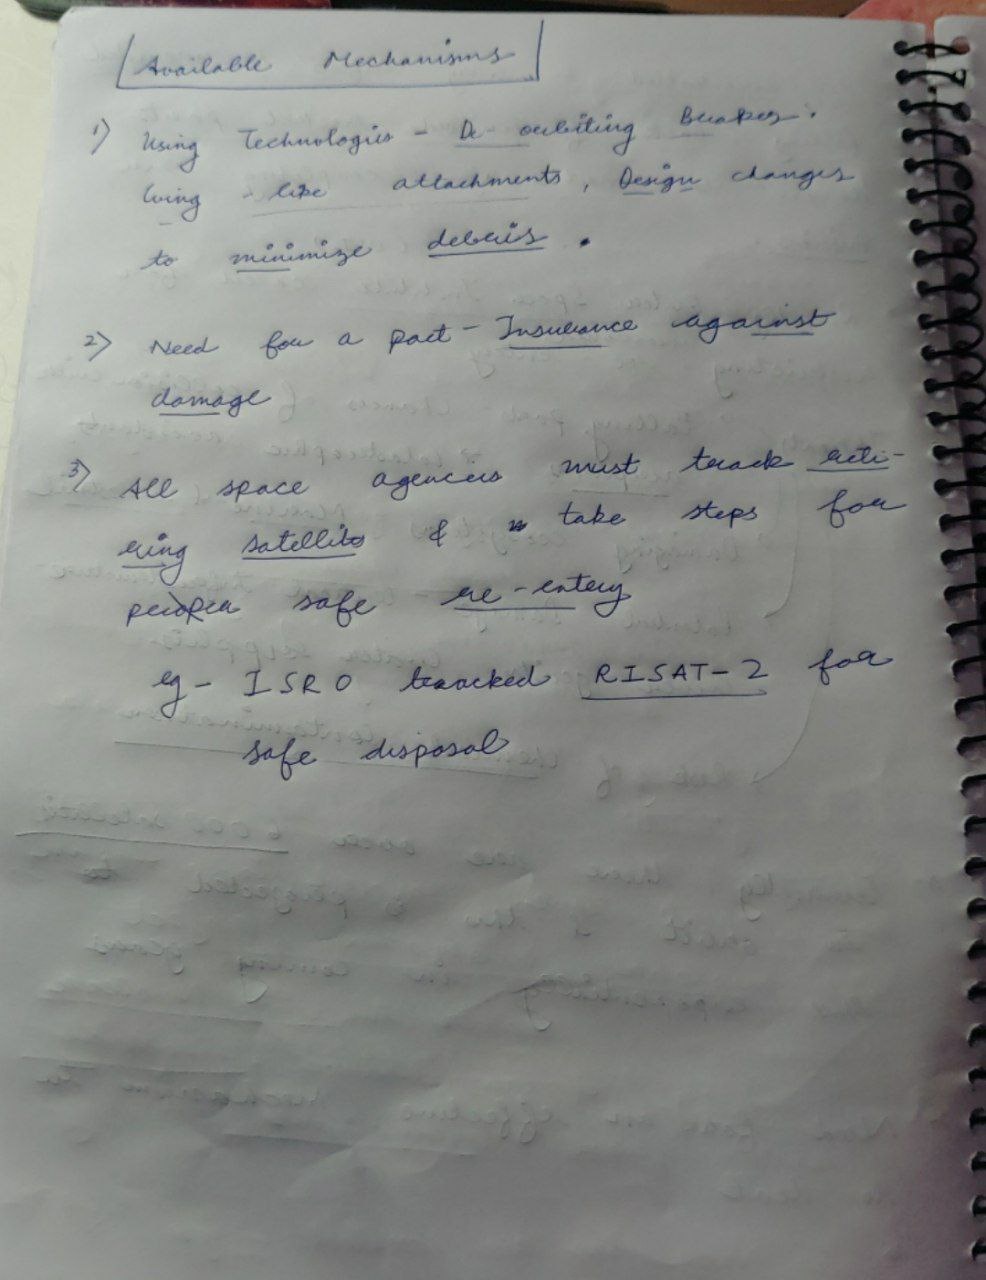 Available Mechanisms
1) Using Technologies - De-orbiting Breakes.
wing - like attachments, Design changes
to minimize debris.
2) Need for a pact - Insurance against
damage
3) All space agencies must track reti-
ring satellites & take steps for
safe re-entry
eg - ISRO tracked RISAT-2 for
safe disposal